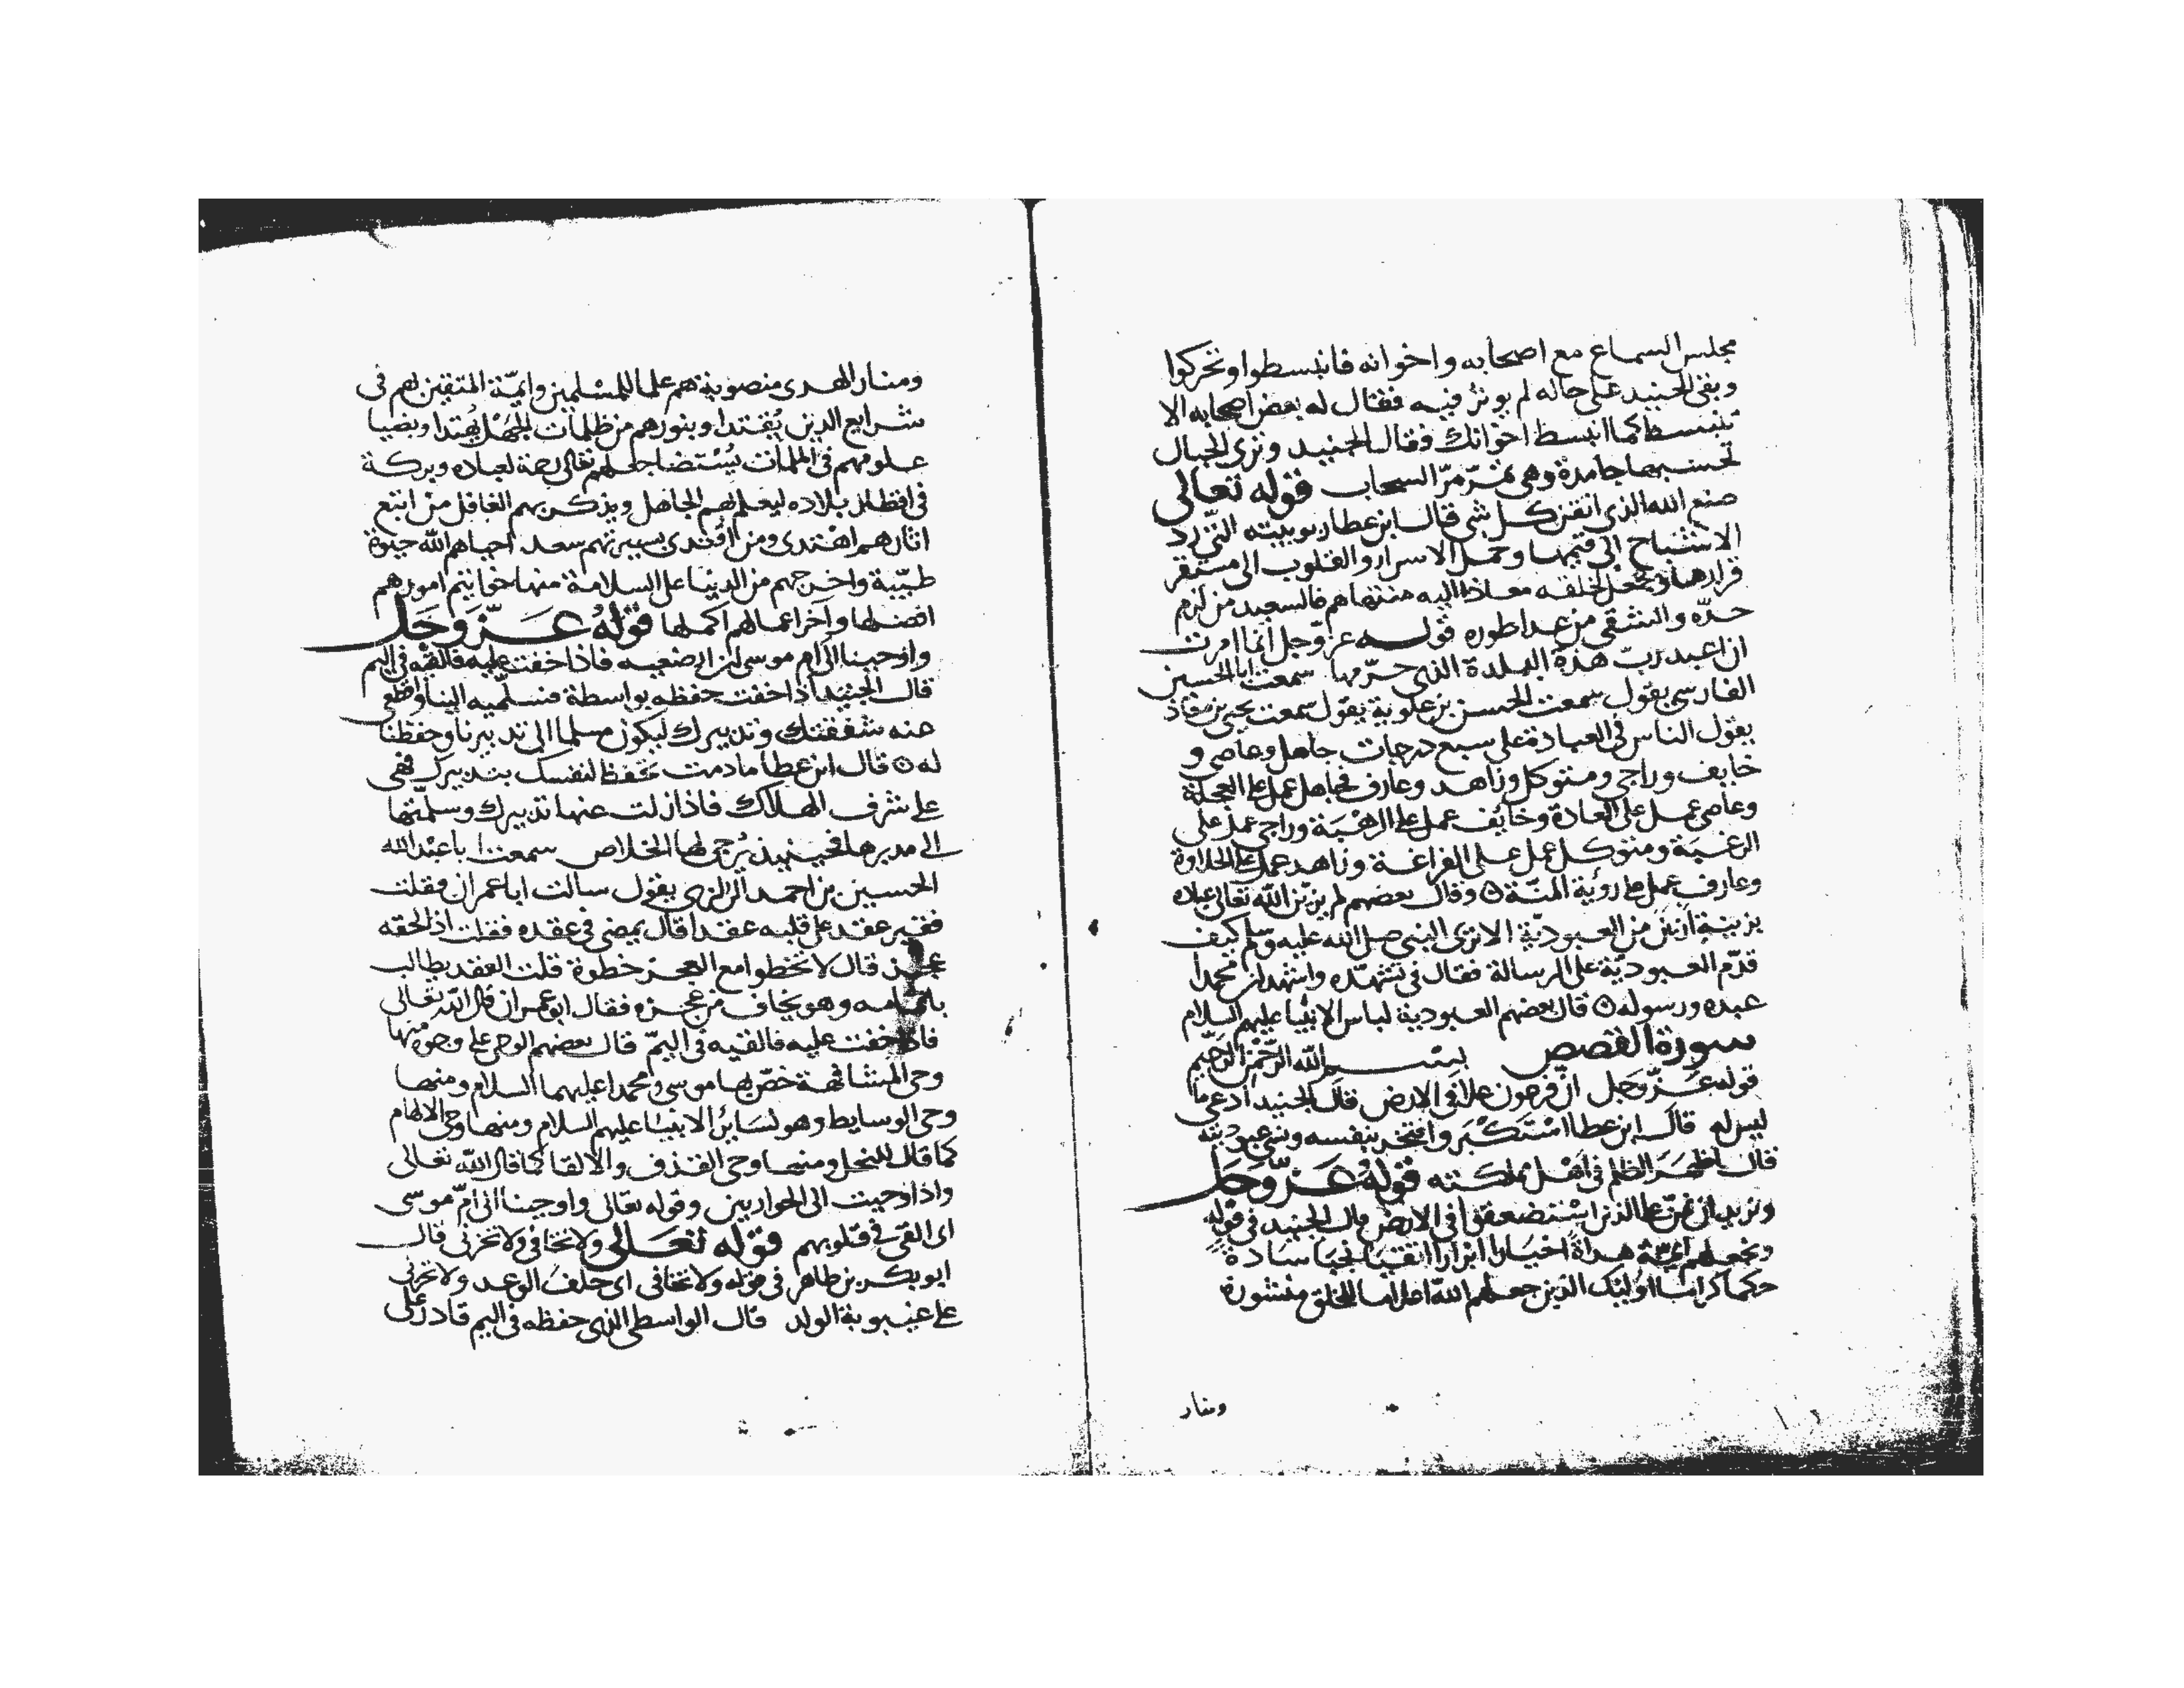 مجلس السماع مع اصحابه واخوانه فانبسطوا وتحركوا
وبقى الجنيد على حاله لم يوثر فيه فقال له بعض اصحابه الا
تنبسط كما انبسط اخوانك فقال الجنيد وترى الجبال
تحسبها جامدة وهى تمر مرّ السحاب قوله تعالى
صنع الله الذى اتقن كل شى قال ابن عطا ربوبيته التى رد
الاشباح الى قيمها وحمل الاسرار والقلوب الى مستقر
قرارها وجعل لخلقه معاذا اليه منتهاهم فالسعيد من لزم
حدّه والشقى من عدا طوره قوله عز وجل انما امرت
ان اعبد ربّ هذه البلدة الذى حرّمها سمعت ابا الحسين
الفارسى يقول سمعت الحسن بن علوية يقول سمعت يحيى بن معاذ
يقول الناس فى العبادة على سبع درجات جاهل وعاصى و
خايف وراجى ومتوكل وزاهد وعارف فجاهل عمل على العجلة
وعاصى عمل على العادة وخايف عمل على الرهبة وراجى عمل على
الرغبة ومتوكل عمل على الفراغة وزاهد عمل على الحلاوة
وعارف عمل على رؤية المنّة ٥ وقال بعضهم لم يزيّن الله تعالى عباده
بزينة ازين من العبوديّة الا ترى النبى صلى الله عليه وسلم كيف
قدّم العبوديّة على الرسالة فقال فى تشهّده واشهد ان محمدا
عبده ورسوله ٥ قال بعضهم العبودية لباس الانبيا عليهم السلام
سورة القصص بسم الله الرّحمن الرّحيم
قوله عزّ وجل ان فرعون علا فى الارض قال الجنيد ادعى ما
ليس له قال ابن عطا استكبر وافتخر بنفسه ونسى عبوديته
قال اظهر الظلم فى اهل مملكته قوله عزّ وجل
ونريد ان نمنّ على الذين استضعفوا فى الارض قال الجنيد فى قوله
ونجعلهم ايمّة هداة اخيارا ابرارا اتقيا نجبا سادة
حكما كراما اوليك الذين جعلهم الله اعلاما للخلق منشورة
ومنار
ومنار الهدى منصوبة هم علما المسلمين وايمّة المتقين بهم فى
شرايع الدين يُقتدا وبنورهم من ظلمات الجهل يُهتدا وبضيا
علومهم فى الملمات يُستضا جعلهم تعالى رحمة لعباده وبركة
فى اقطار بلاده ليعلم بهم الجاهل ويذكر بهم الغافل من اتبع
اثارهم اهتدى ومن اقتدى بسيرتهم سعد احياهم الله حيوة
طيّبة واخرجهم من الدنيا على السلامة منها خواتيم امورهم
افضلها واخر اعمالهم اكملها قوله عزّ وجل
واوحينا الى ام موسى ان ارضعيه فاذا خفت عليه فالقيه فى اليم
قال الجنيد اذا خفت حفظه بواسطة فسلّميه الينا واقطعى
عنه شفقتك وتدبيرك ليكون مسلما الى تدبيرنا وحفظنا
له ٥ قال ابن عطا ما دمت تحفظ لنفسك بتدبيرك فهى
على شرف الهلاك فاذا زلت عنها تدبيرك وسلمتها
الى مدبرها فحينيذ يُرجى لها الخلاص سمعت ابا عبد الله
الحسين بن احمد الرازى يقول سالت ابا عمران فقلت
فقير عقد على قلبه عقدا قال يمضى فى عقده فقلت اذا لحقه
عجز قال لا تخطوا مع العجز خطوة قلت العقد يطالب
وهو يخاف من عجزه فقال ابو عمران قال الله تعالى
فاذا خفت عليه فالقيه فى اليمّ قال بعضهم الوحى على وجوه منها
وحى المشافهة خصّ بها موسى ومحمدا عليهما السلام ومنها
وحى الوسايط وهو لسائر الانبيا عليهم السلام ومنها وحى الالهام
كما قال للنحل ومنها وحى القذف والالقا كما قال الله تعالى
واذ اوحيت الى الحواريين وقوله تعالى واوحينا الى امّ موسى
اى القى فى قلوبهم قوله تعالى ولا تخافى ولا تحزنى قال
ابو بكر بن طاهر فى قوله ولا تخافى اى خلف الوعد ولا تحزنى
على غيبوبة الولد قال الواسطى الذى حفظه فى اليم قادر على